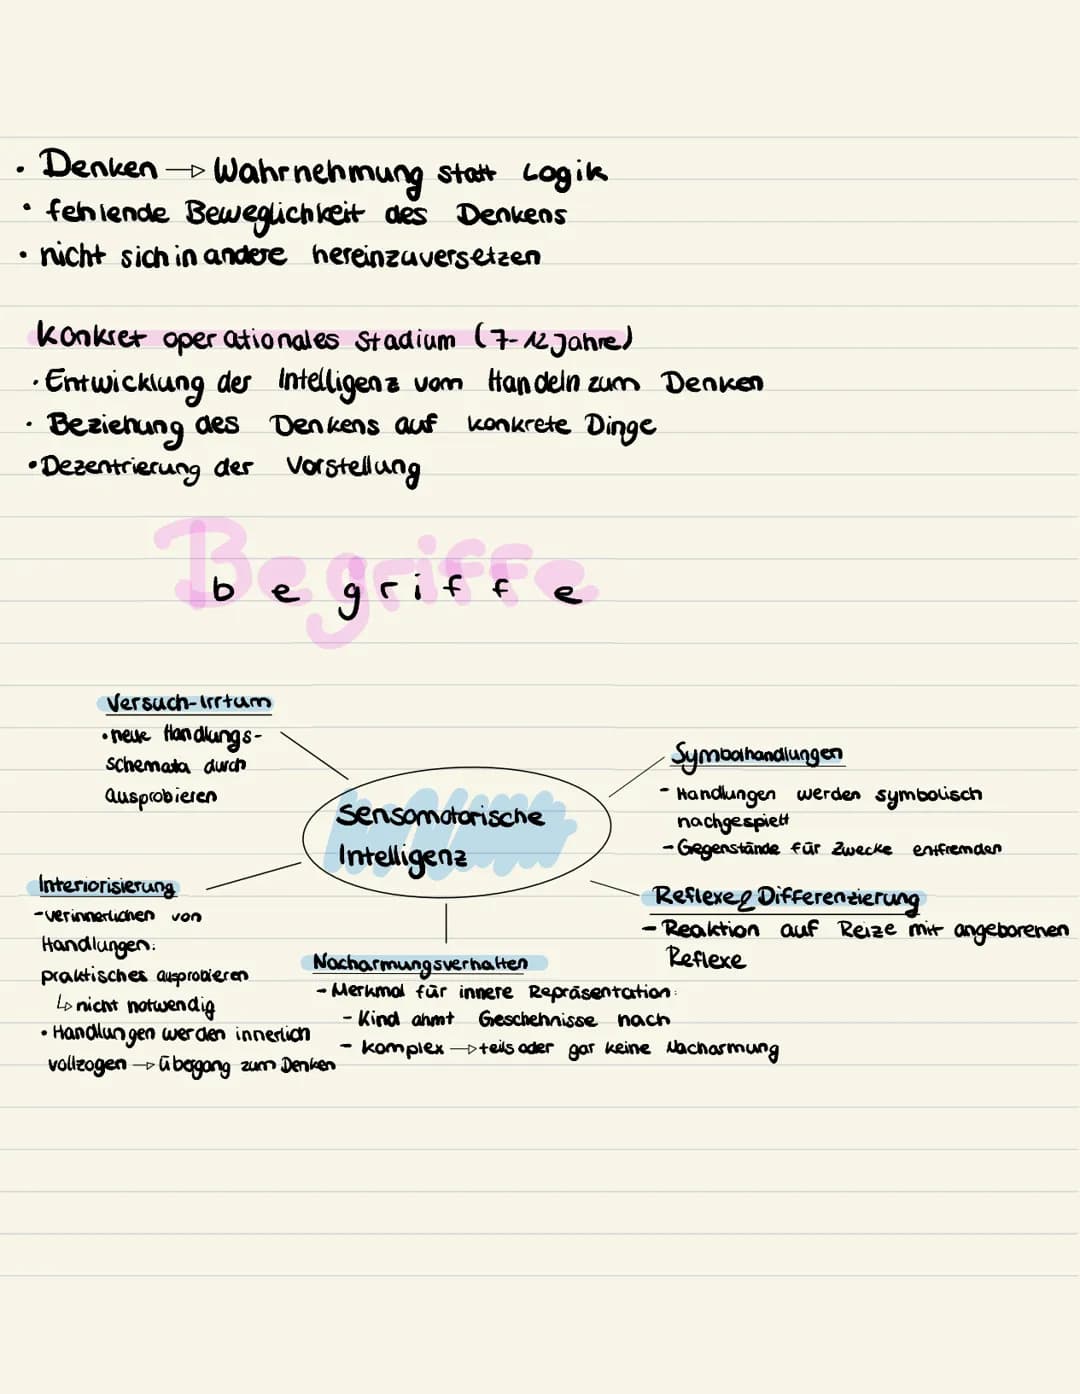 · Denken → Wahrnehmung statt Logik
· fehlende Beweglichkeit des Denkens
· nicht sich in andere hereinzuversetzen
Konkret operationales Stadium (7-12 Jahre)
· Entwicklung der Intelligenz vom Handeln zum Denken
· Beziehung des Denkens auf konkrete Dinge
· Dezentrierung der Vorstellung
Begriffe
begriffe
Versuch-Irrtum
· neue Handlungs-
schemata durch
ausprobieren
Sensomotorische
Intelligenz
Symbolhandlungen
- Handlungen werden symbolisch
nachgespielt
- Gegenstände für Zwecke entfremden
Interiorisierung
- verinnerlichen von
Handlungen:
praktisches ausprobieren
↳ nicht notwendig
· Handlungen werden innerlich
vollzogen → übergang zum Denken
Nacharmungsverhalten
- Merkmal für innere Repräsentation:
- Kind ahmt Geschehnisse nach
- komplex → teils oder gar keine Nacharmung
Reflexe & Differenzierung
- Reaktion auf Reize mit angeborenen
Reflexe